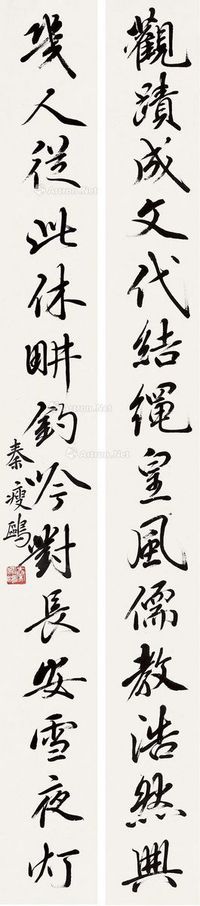 觀蹟成文代結繩皇風儒教浩然興
幾人從此休畊釣吟對長安雪夜灯
秦瘦鷗